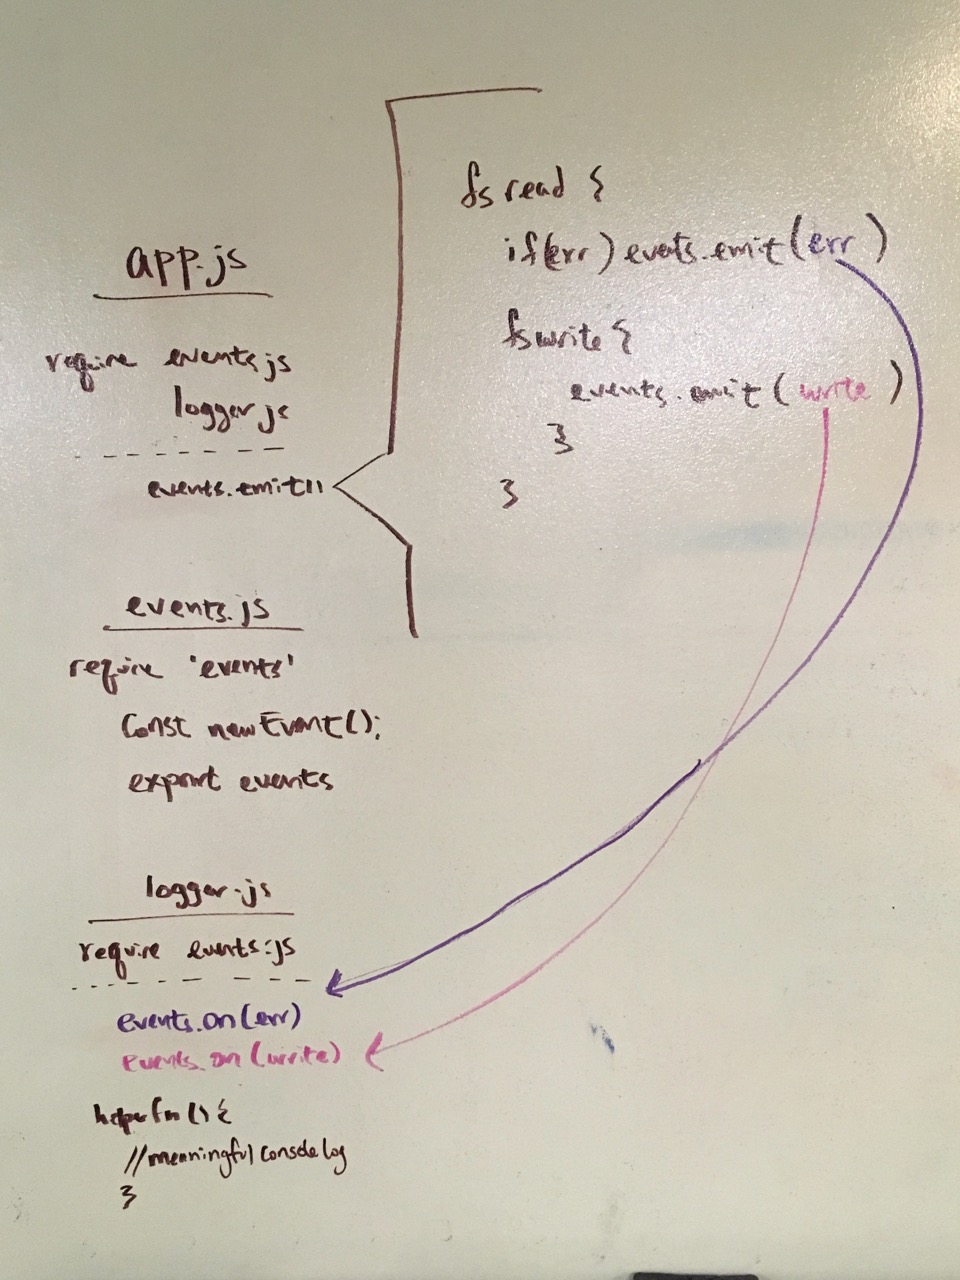 app.js
require events.js
logger.js
events.emit()
fs read {
if(err) events.emit(err)
fswrite {
events.emit(write)
}
}
events.js
require 'events'
Const newEvent();
export events
logger.js
require events.js
events.on(err)
events.on(write)
helperfn() {
//meaningful console log
}